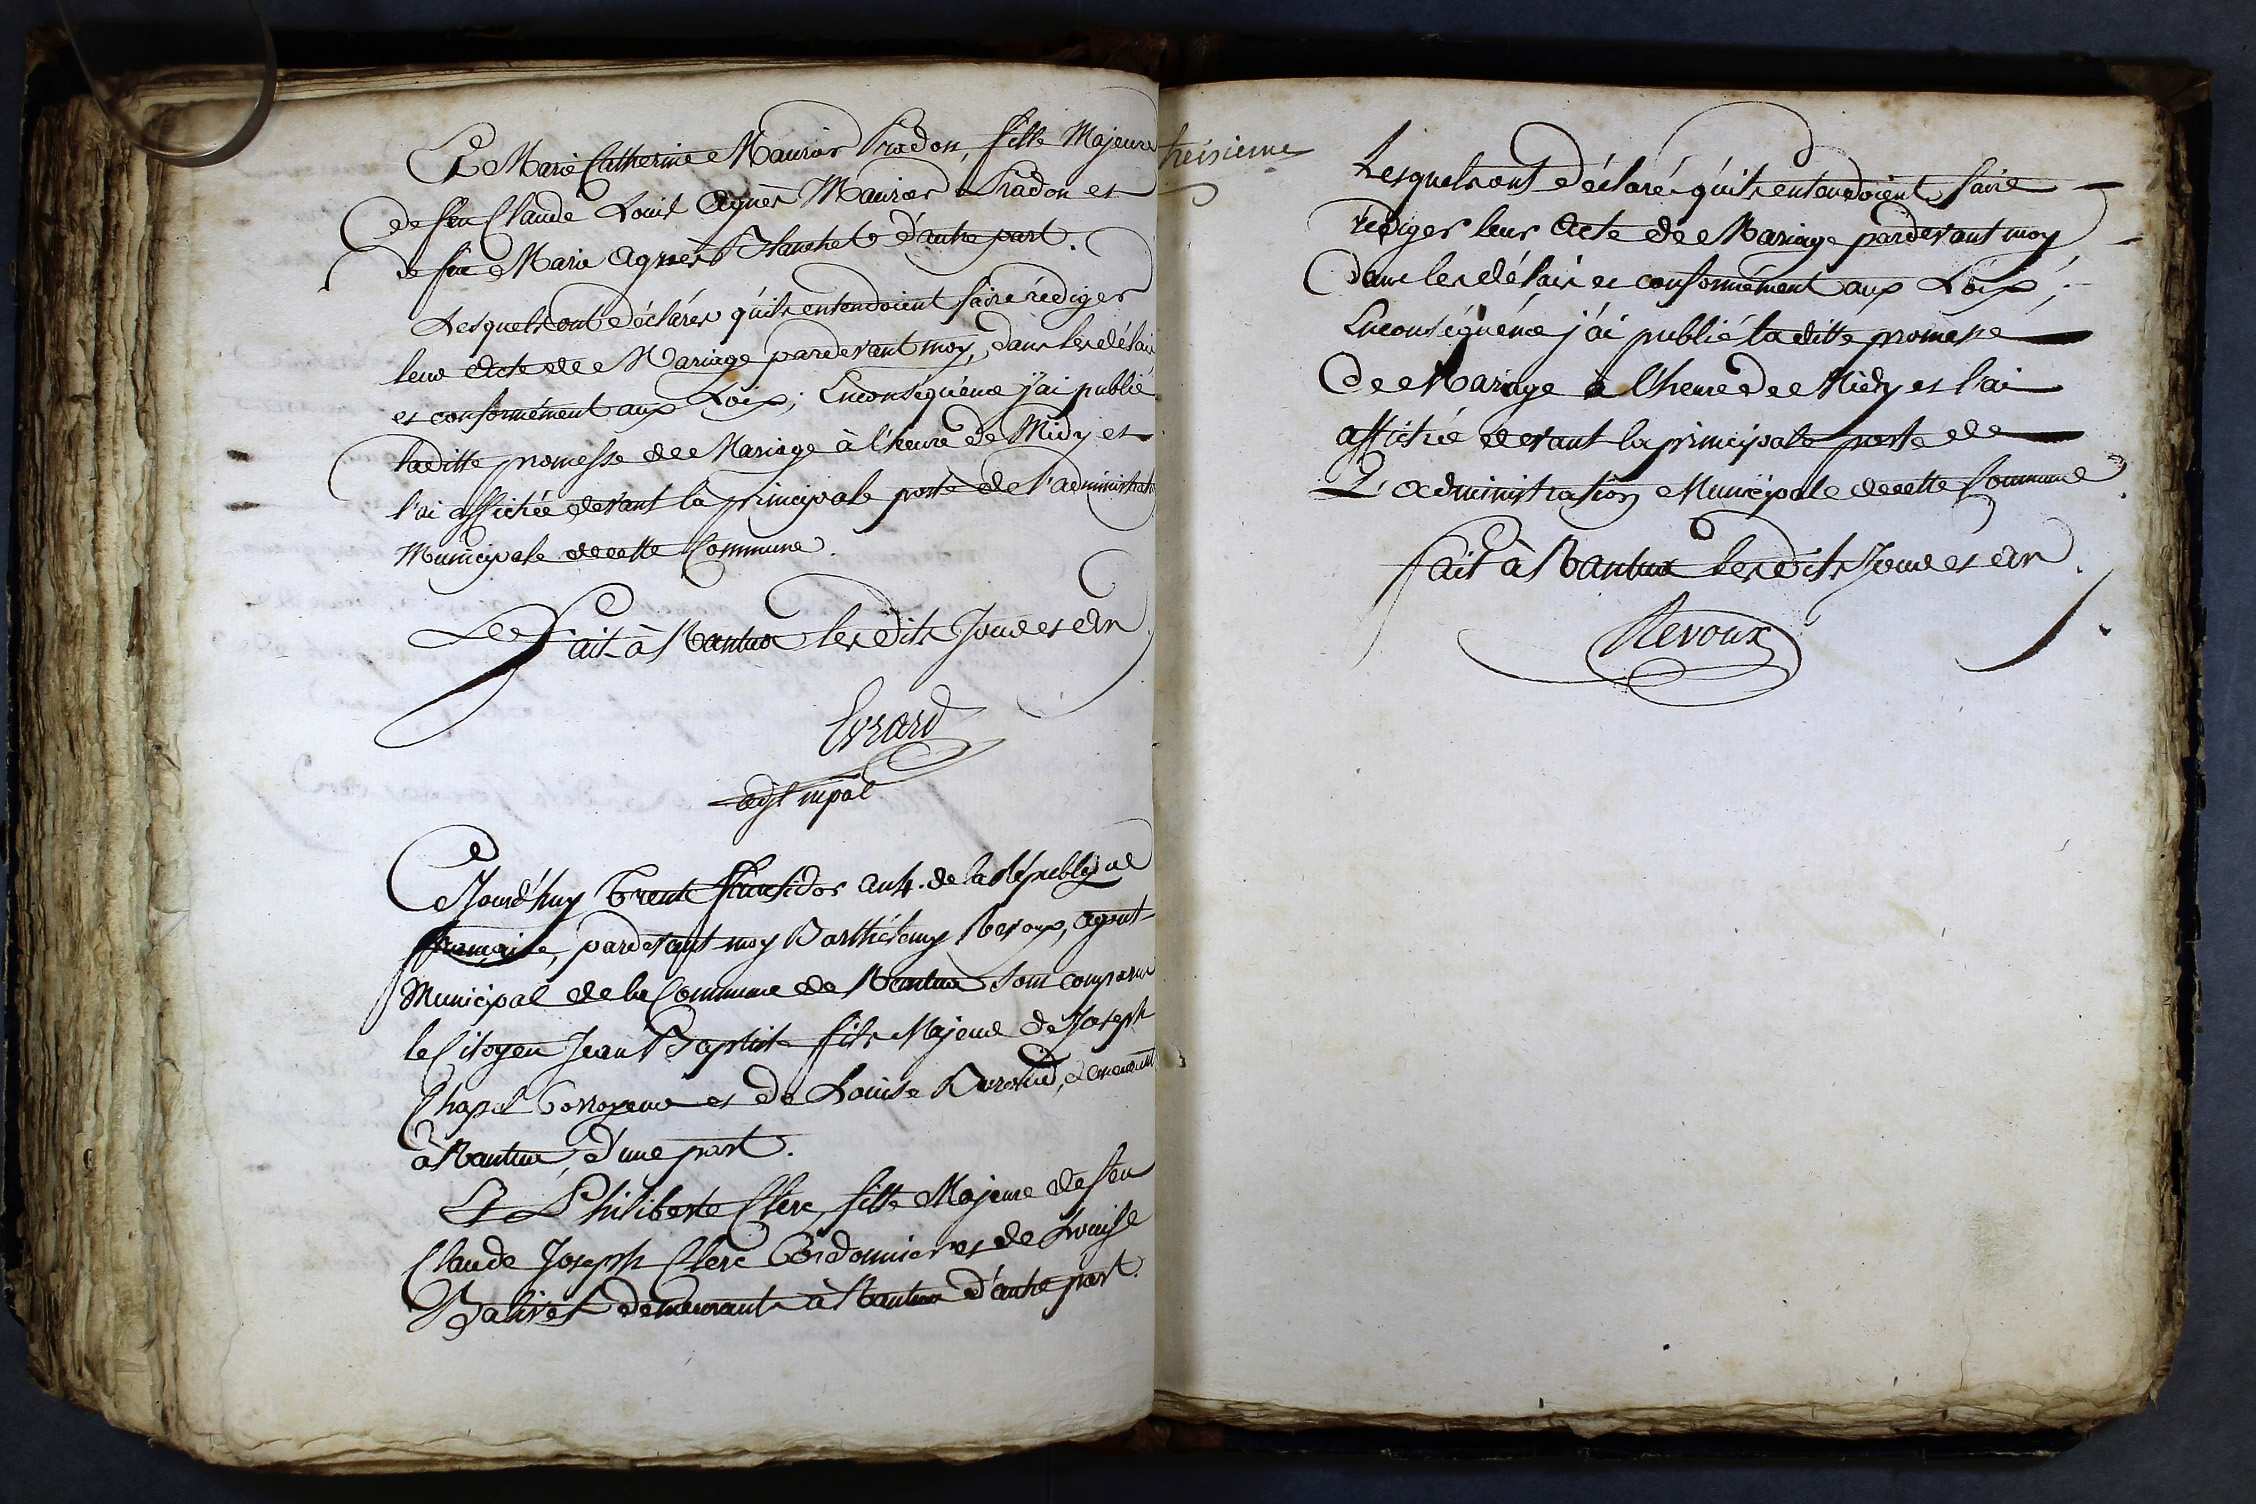 Et Marie Catherine Maurier Pradon, fille Majeure
de feu Claude Louis Agnès Maurier Pradon et
de feue Marie Agnès Blanchet d'autre part.
Lesquels ont déclarés qu'ils entendoient faire rédiger
leur Acte de Mariage pardevant moy, dans les délais
et conformément aux Loix; Enconséquence j'ai publié
laditte promesse de Mariage à l'heure de Midy et
l'ai affichée devant la principale porte de l'administratn
Municipale de cette Commune.
Fait à Nantua les dits Jour et an
Evrard
agt mpal
Ce Jourd'huy trente fructidor an 4. de la République
française, pardevant moy Barthélemy Revoux, agent
Municipal de la Commune de Nantua sont comparus
le Citoyen Jean Baptiste fils Majeur de Joseph
Chapel Corroyeur et de Louise demeurant
à Nantua, d'une part.
Et Philiberte Clerc, fille Majeure de feu
Claude Joseph Clerc Cordonnier et de Louise
Balivet demeurante à Nantua d'autre part.
treisieme
Lesquels ont déclaré qu'ils entendoient faire
rédiger leur Acte de Mariage pardevant moy
dans les délais et conformément aux Loix;
Enconséquence j'ai publié laditte promesse
de Mariage à l'heure de Midy et l'ai
affichée devant la principale porte de
L'administration Municipale de cette Commune
fait à Nantua les dits Jour et an.
Revoux